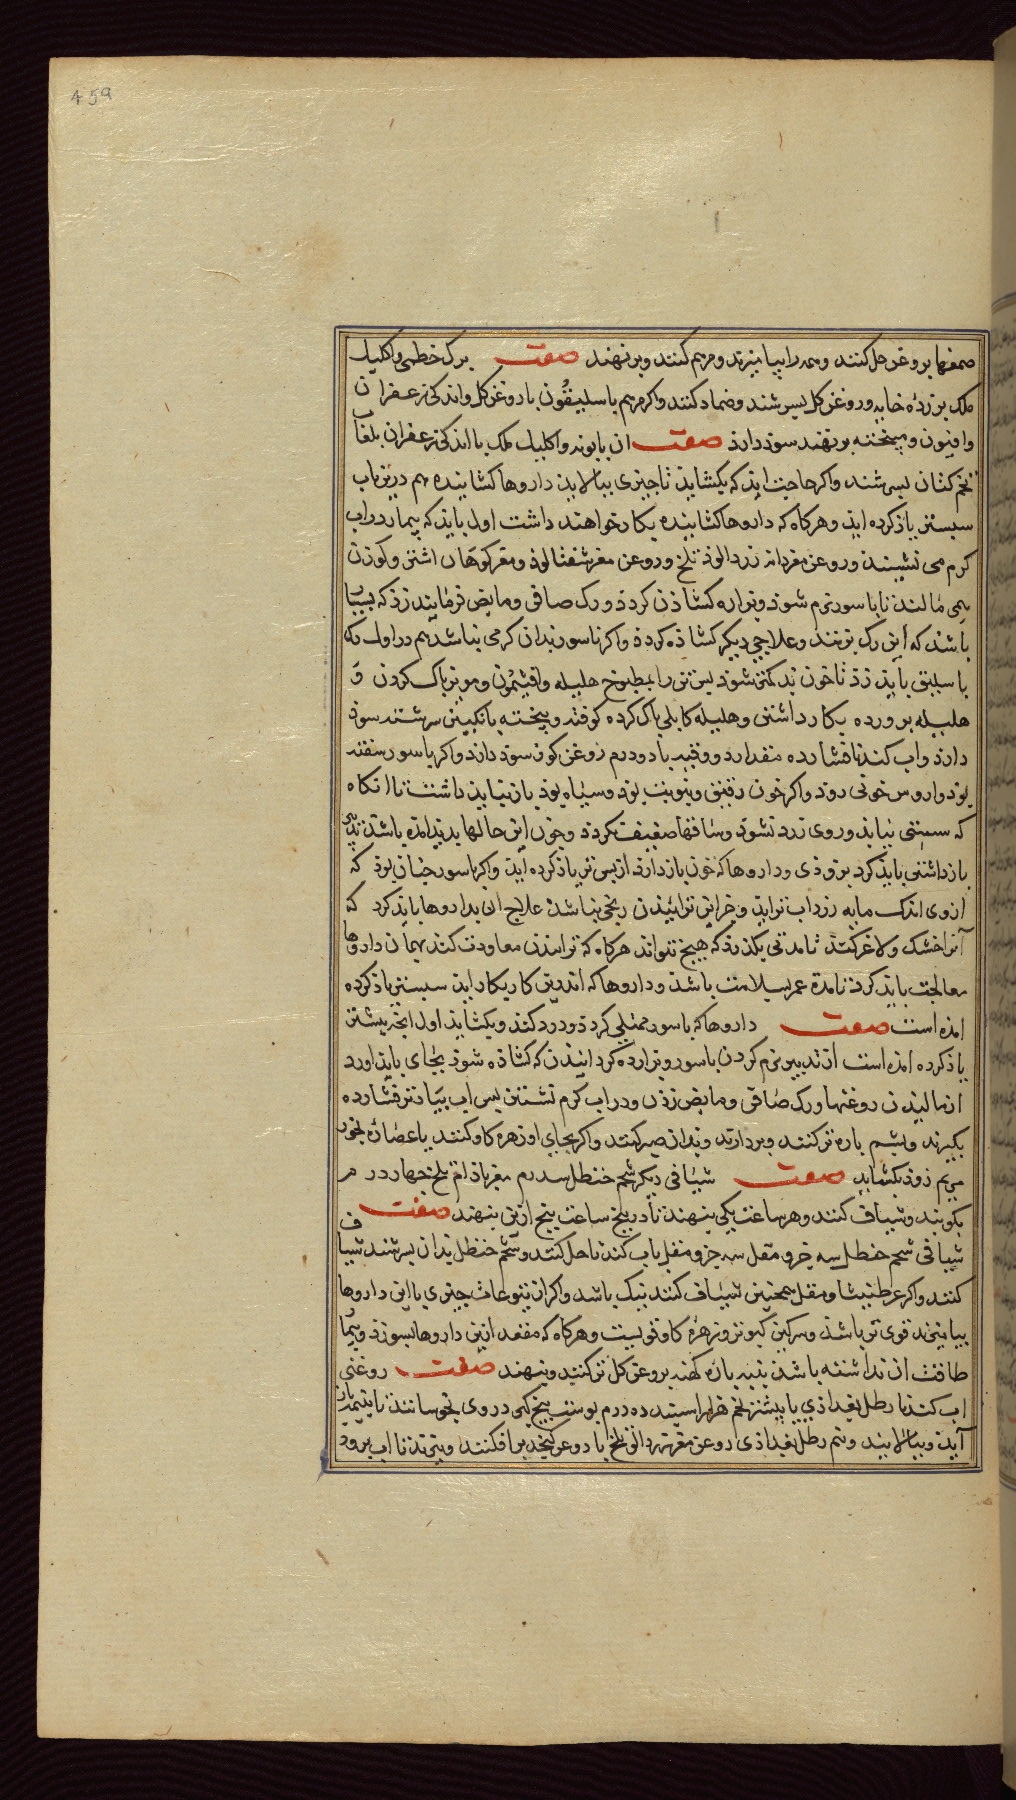 459
صمغها بروغن حل کنند و همه را بیامیزند و مرهم کنند و برنهند صفت برک خطمی و اکلیل
ملک بزرده خایه و روغن کل بسرشند و ضماد کنند و اکر مرهم باسلیقون با روغن کل و اندکی زعفران
و افیون و میپخته برنهند سود دارد صفت ان بابونه و اکلیل ملک با اندکی زعفران بلعاب
تخم کتان بسرشند و اکر حاجت اید که بکشاید تا چیزی ببالاید داروها کشاینده هم درین باب
سپستر یاذ کرده اید و هرکاه که داروها کشاینده بکار خواهند داشت اول باید که بیمار در اب
کرم می نشیند و روغن مغز دانه زردالوذ تلخ و روغن مغز شفتالوذ و مغز کوهان اشتر و کوزن
می مالند تا باسور نرم شود و براه کشاذن کردذ و رک صافی و مابض فرمایند زذ که بسیار
باشد که این رک بزنند و علاجی دیکر کشاذه کردذ و اکر ناسور بدان کرمی نباشد هم در اول رک
باسلیق باید زذ تا خون بد کمتر شود پس تن را بمطبوخ هلیله و افتیمون و مویز پاک کردن و
هلیله پرورده بکار داشتن و هلیله کابلی پاک کرده کوفته و بیخته بانکبین سرشته سود
دارذ و اب کندنا فشارده مقدار دو وقیه با دو درم روغن کوز سوذ دارذ و اکر باسور سفته
بوذ و ازوی خونی روذ و اکر خون رقیق و بنوبت بوذ و سیاه بوذ باز نباید داشت تا انکاه
که سستی نیاید و روی زرد نشود و ساقها ضعیف نکردذ و چون این حالها پدید امده باشد تدبیر
بازداشتن باید کرد بزوذی و داروها که خون بازدارد از پس تر یاذ کرده اید و اکر باسور چنان بوذ که
ازوی اندک مایه زرداب ترابد و جز این ترابیدن رنجی نباشد علاج ان بداروها باید کرد که
آنرا خشک و لاغر کند تا مدتی بکذرذ که هیچ نتواند هرکاه که ترابیدن معاودت کند بهمان داروها
معالجت باید کرد تا مدة عمر بسلامت باشد و داروها که اندرین کار بکار اید سپستر یاذ کرده
امذه است صفت داروها که باسور ممتلی کردذ و درد کند و بکشاید اول انچه پیشتر
یاذ کرده امذه است از تدبیر نرم کردن باسور و براه کردانیدن که کشاذه شوذ بجای باید اورد
از مالیدن روغنها و رک صافی و مابض زذن و در اب کرم نشستن پس اب پیاز تر فشارده
بکیرند و پشم پاره تر کنند و بردارند و بدان صبر کنند و اکر بجای او زهره کاو کنند یا عصاره بخور
مریم زوذ بکشاید صفت شیافی دیکر شحم حنظل سه درم مغز باذام تلخ چهار درم
بکوبند و شیاف کنند و هر ساعت یکی بنهند تا در پنج ساعت پنج ازین بنهند صفت
شیافی شحم حنظل سه جزو مقل سه جزو مقل باب کندنا حل کنند و شحم حنظل بدان بسرشند شیاف
کنند و اکر عرطنیثا و مقل همچنین شیاف کنند نیک باشد و اکر از یتوعات چیزی با این داروها
بیامیزند قوی تر باشد و سرکین کبوتر و زهره کاو قویست و هرکاه که مقعد ازین داروها بسوزذ و بیمار
طاقت ان نداشته باشد پنبه پاره کهنه بروغن کل تر کنند و بنهند صفت روغنی
اب کندنا رطل بغداذی یا بیشتر تخم هزار اسپند ده درم پوست بیخ کبر در وی بجوشانند تا بنیمه باز
آید و ببالایند و نیم رطل بغداذی روغن مغز زردالو تلخ یا روغن کنجد برافکنند و بپزند تا اب برود